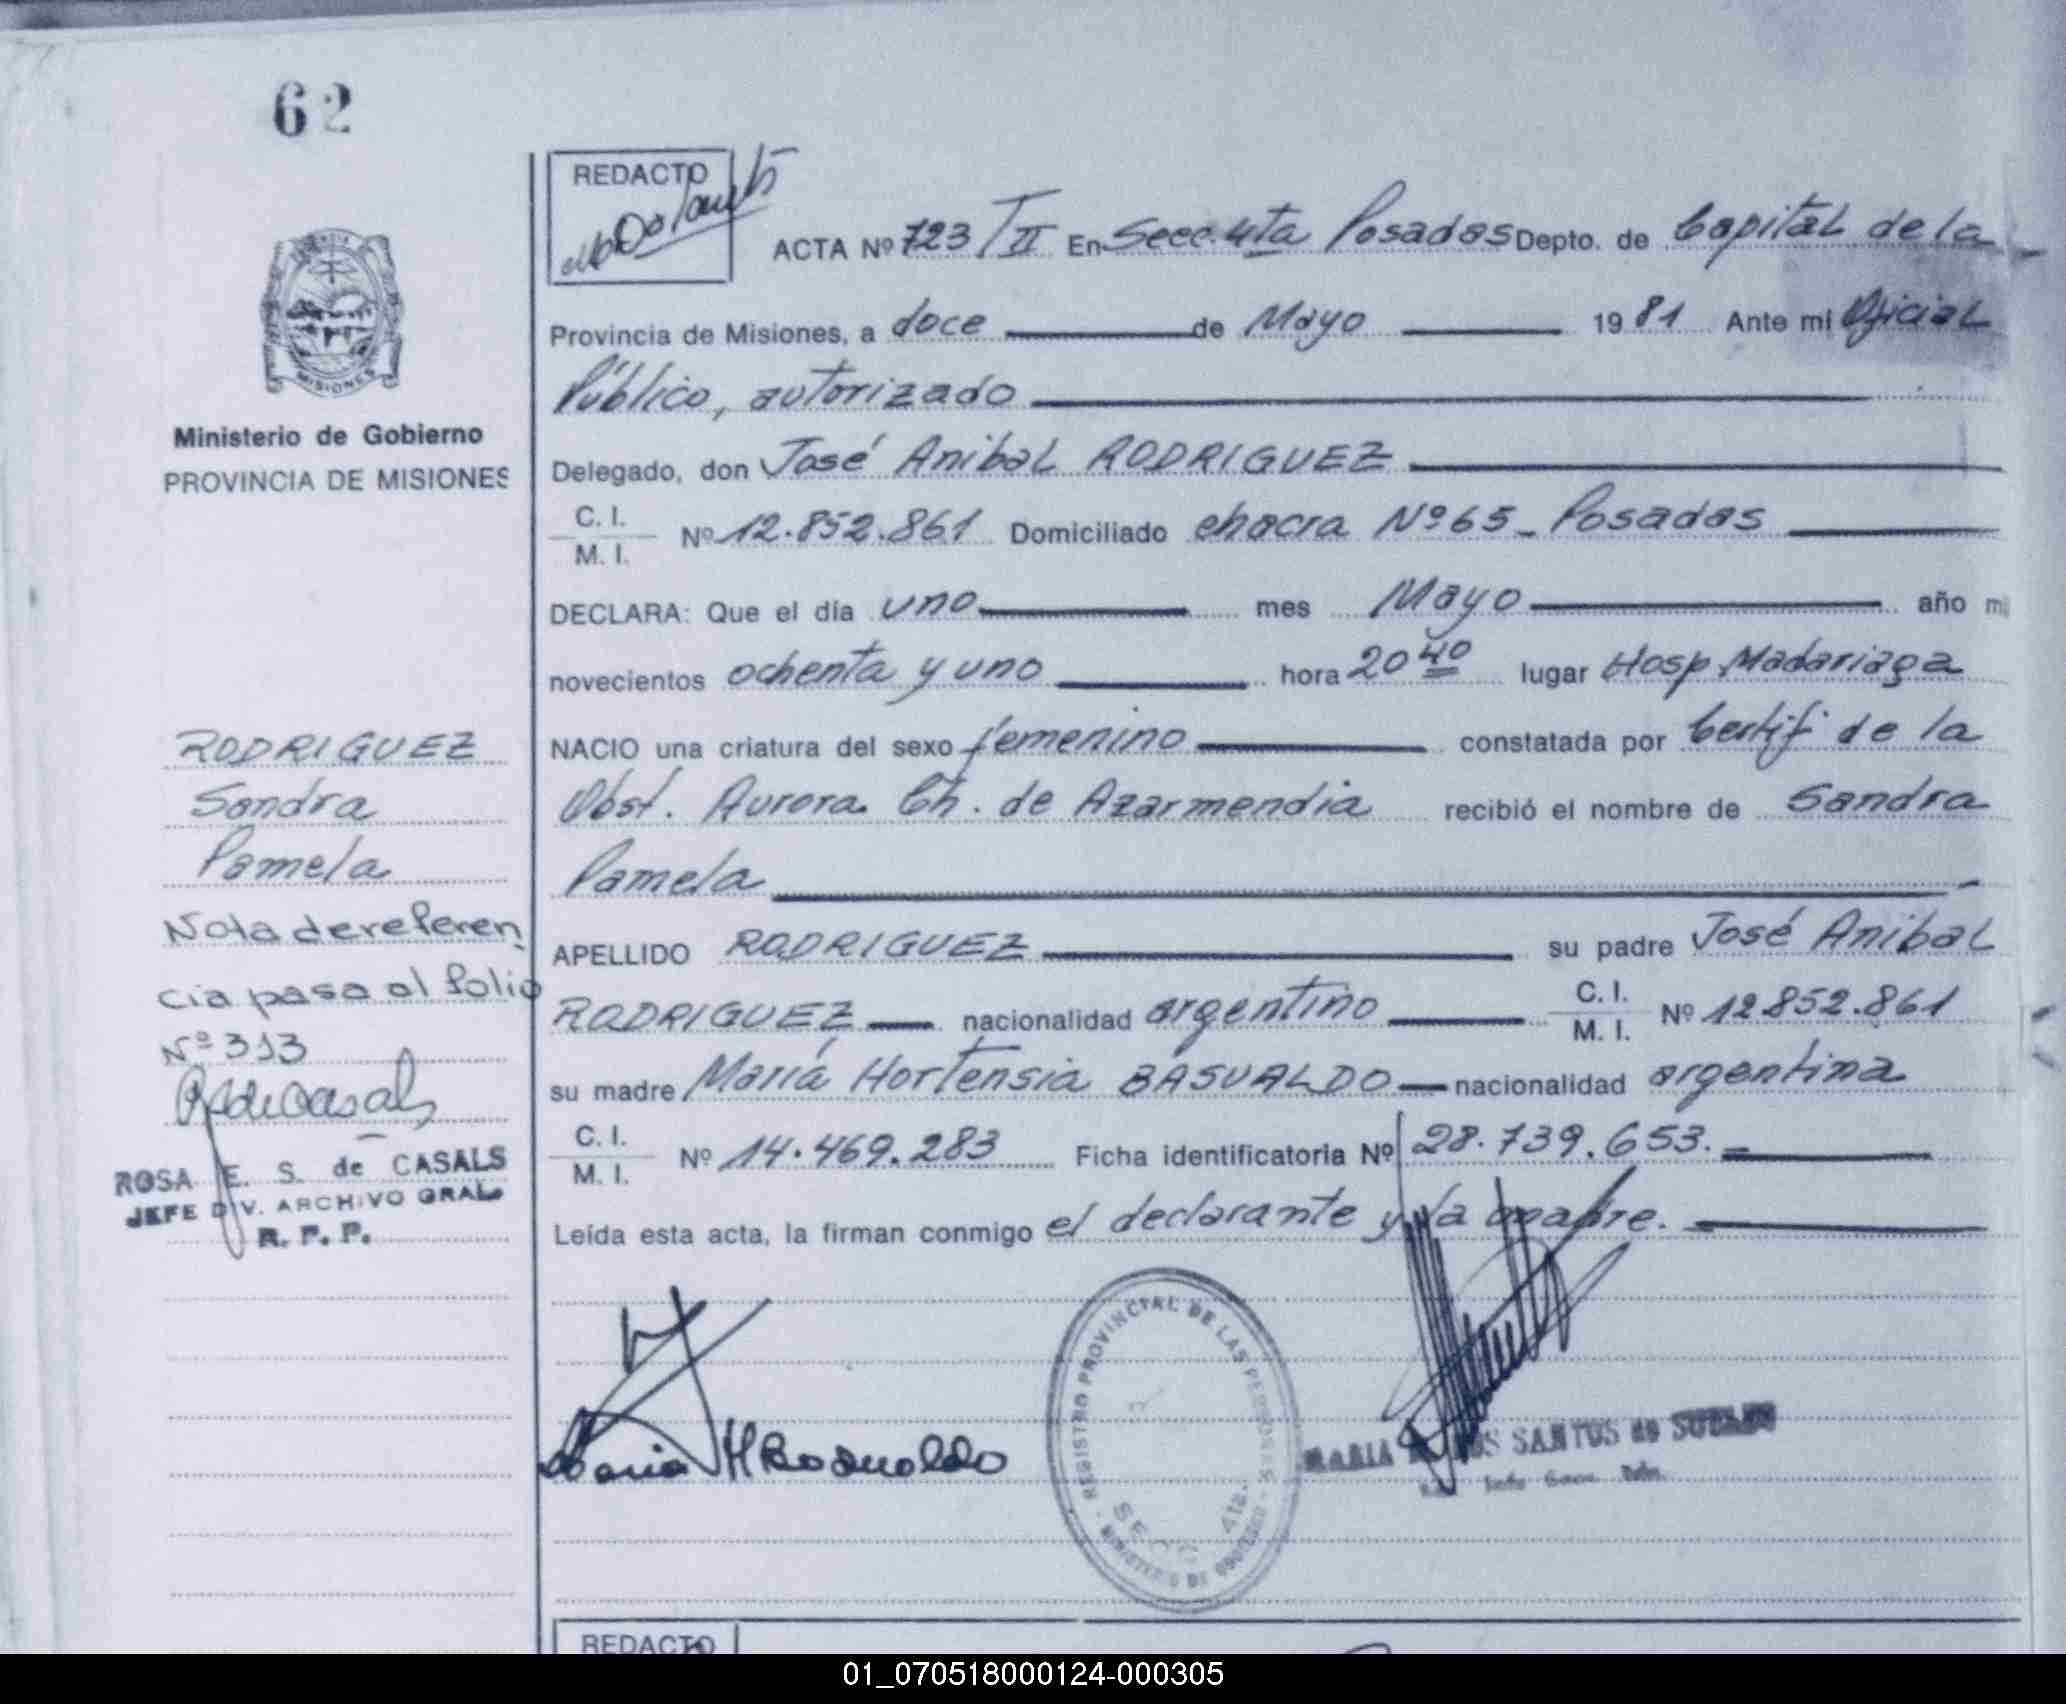 62
REDACTO
ACTA Nº 723/II En Secc. 4ta Posadas Depto. de Capital de la
Provincia de Misiones, a doce de Mayo 1981 Ante mi Oficial
Público, autorizado
Delegado, don José Anibal RODRIGUEZ
C. I.
M. I. Nº 12.852.861 Domiciliado chacra Nº 65 - Posadas
DECLARA: Que el día uno mes Mayo año m
novecientos ochenta y uno hora 20 40 lugar Hosp. Madariaga
NACIO una criatura del sexo femenino constatada por Certif de la
Obst. Aurora Ch. de Azarmendia recibió el nombre de Sandra
Pamela
APELLIDO RODRIGUEZ su padre José Anibal
RODRIGUEZ nacionalidad argentino C. I. M. I. Nº 12.852.861
su madre María Hortensia BASUALDO nacionalidad argentina
C. I.
M. I. Nº 14.469.283 Ficha identificatoria Nº 28.739.653.
Leída esta acta, la firman conmigo el declarante y la madre.
Maria H Basualdo
REGISTRO PROVINCIAL DE LAS PERSONAS
MINISTERIO DE GOBIERNO
4ta.
MARIA SANTOS de
MISIONES
Ministerio de Gobierno
PROVINCIA DE MISIONES
RODRIGUEZ
Sandra
Pamela
Nota de referen
cia pasa al folio
Nº 313
R S de Casals
ROSA E. S. de CASALS
JEFE DIV. ARCHIVO GRAL.
R. P. P.
REDACTO
01_070518000124-000305